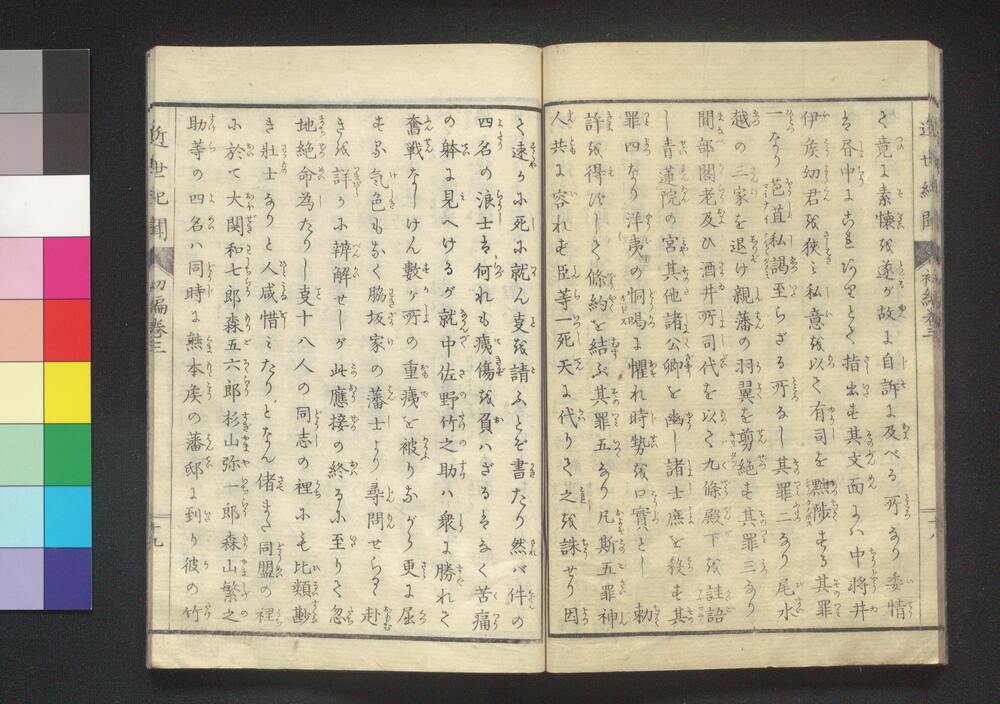 て竟に素懐を遂ぐ故に自訴に及べる所なり委情
は啓中にこれありとて指出す其文面には中将井
伊侯幼君を狭み私意を以て有司を黜陟する其罪
一なり苞苴私謁至らざる所なし其罪二なり尾水
越の三家を退け親藩の羽翼を剪絶す其罪三なり
間部閣老及び酒井所司代を以て九條殿下を詿誤
し青蓮院の宮其他諸公卿を幽し諸士庶を殺す其
罪四なり洋夷の恫喝に懼れ時勢を口實とし勅
許を得ずして條約を結ぶ其罪五なり凡斯五罪神
人共に容れず臣等一死天に代りて之を誅せり因
て速かに死に就ん事を請ふとぞ書たり然バ件の
四名の浪士は何れも痍傷を負ハざるはなく苦痛
の躰に見へけるが就中佐野竹之助ハ衆に勝れて
奮戦なしけん數ヶ所の重痍を被りながら更に屈
する気色もなく脇坂家の藩士より尋問せらるる赴
きを詳かに辨解せしが此應接の終るに至りて忽
地絶命為たりし事十八人の同志の裡にも比類尠
き壮士なりと人咸惜みたりとなん偖また同盟の裡
に於て大関和七郎森五六郎杉山弥一郎森山繁之
助等の四名ハ同時に熊本侯の藩邸に到り彼の竹
近世紀聞 初編巻三 十九